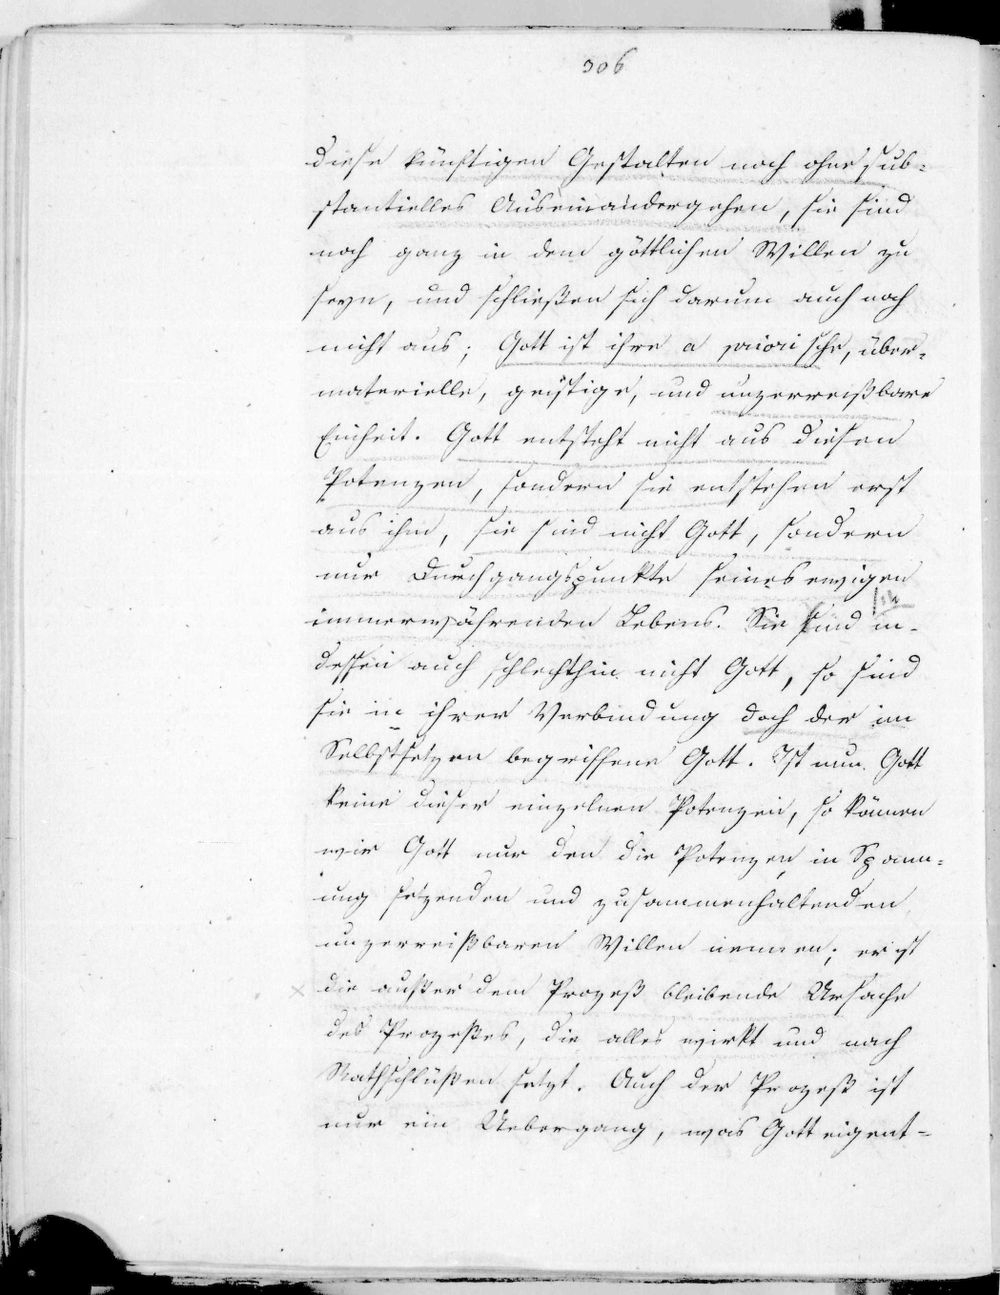 306
diese künftigen Gestalten noch ohne sub-
stantielles Auseinandergehen, sie sind
noch ganz in dem göttlichen Willen zu
seyn, und schließen sich darum auch noch
nicht aus; Gott ist ihre a priorische, über-
materielle, geistige, und unzerreißbare
Einheit. Gott entsteht nicht aus diesen
Potenzen, sondern sie entstehen erst
aus ihm, sie sind nicht Gott, sondern
nur Durchgangspunkte seines ewigen
immerwährenden Lebens. Sie sind in-
dessen auch schlechthin nicht Gott, so sind
sie in ihrer Verbindung doch der im
Selbstsetzen begriffene Gott. Ist nun Gott
keine dieser einzelnen Potenzen, so können
wir Gott nur den die Potenzen in Spann-
ung setzenden und zusammenhaltenden
unzerreißbaren Willen nennen; er ist
die außer dem Prozeß bleibende Ursache
des Prozeßes, die alles wirkt und nach
Rathschlüßen setzt. Auch der Prozeß ist
nur ein Uebergang, was Gott eigent-